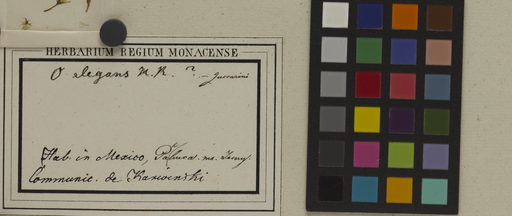 HERBARIUM REGIUM MONACENSE
O elegans H. K. ? — Zuccarini
Hab. in Mexico, Pachuca.
Communic. de Karwinski